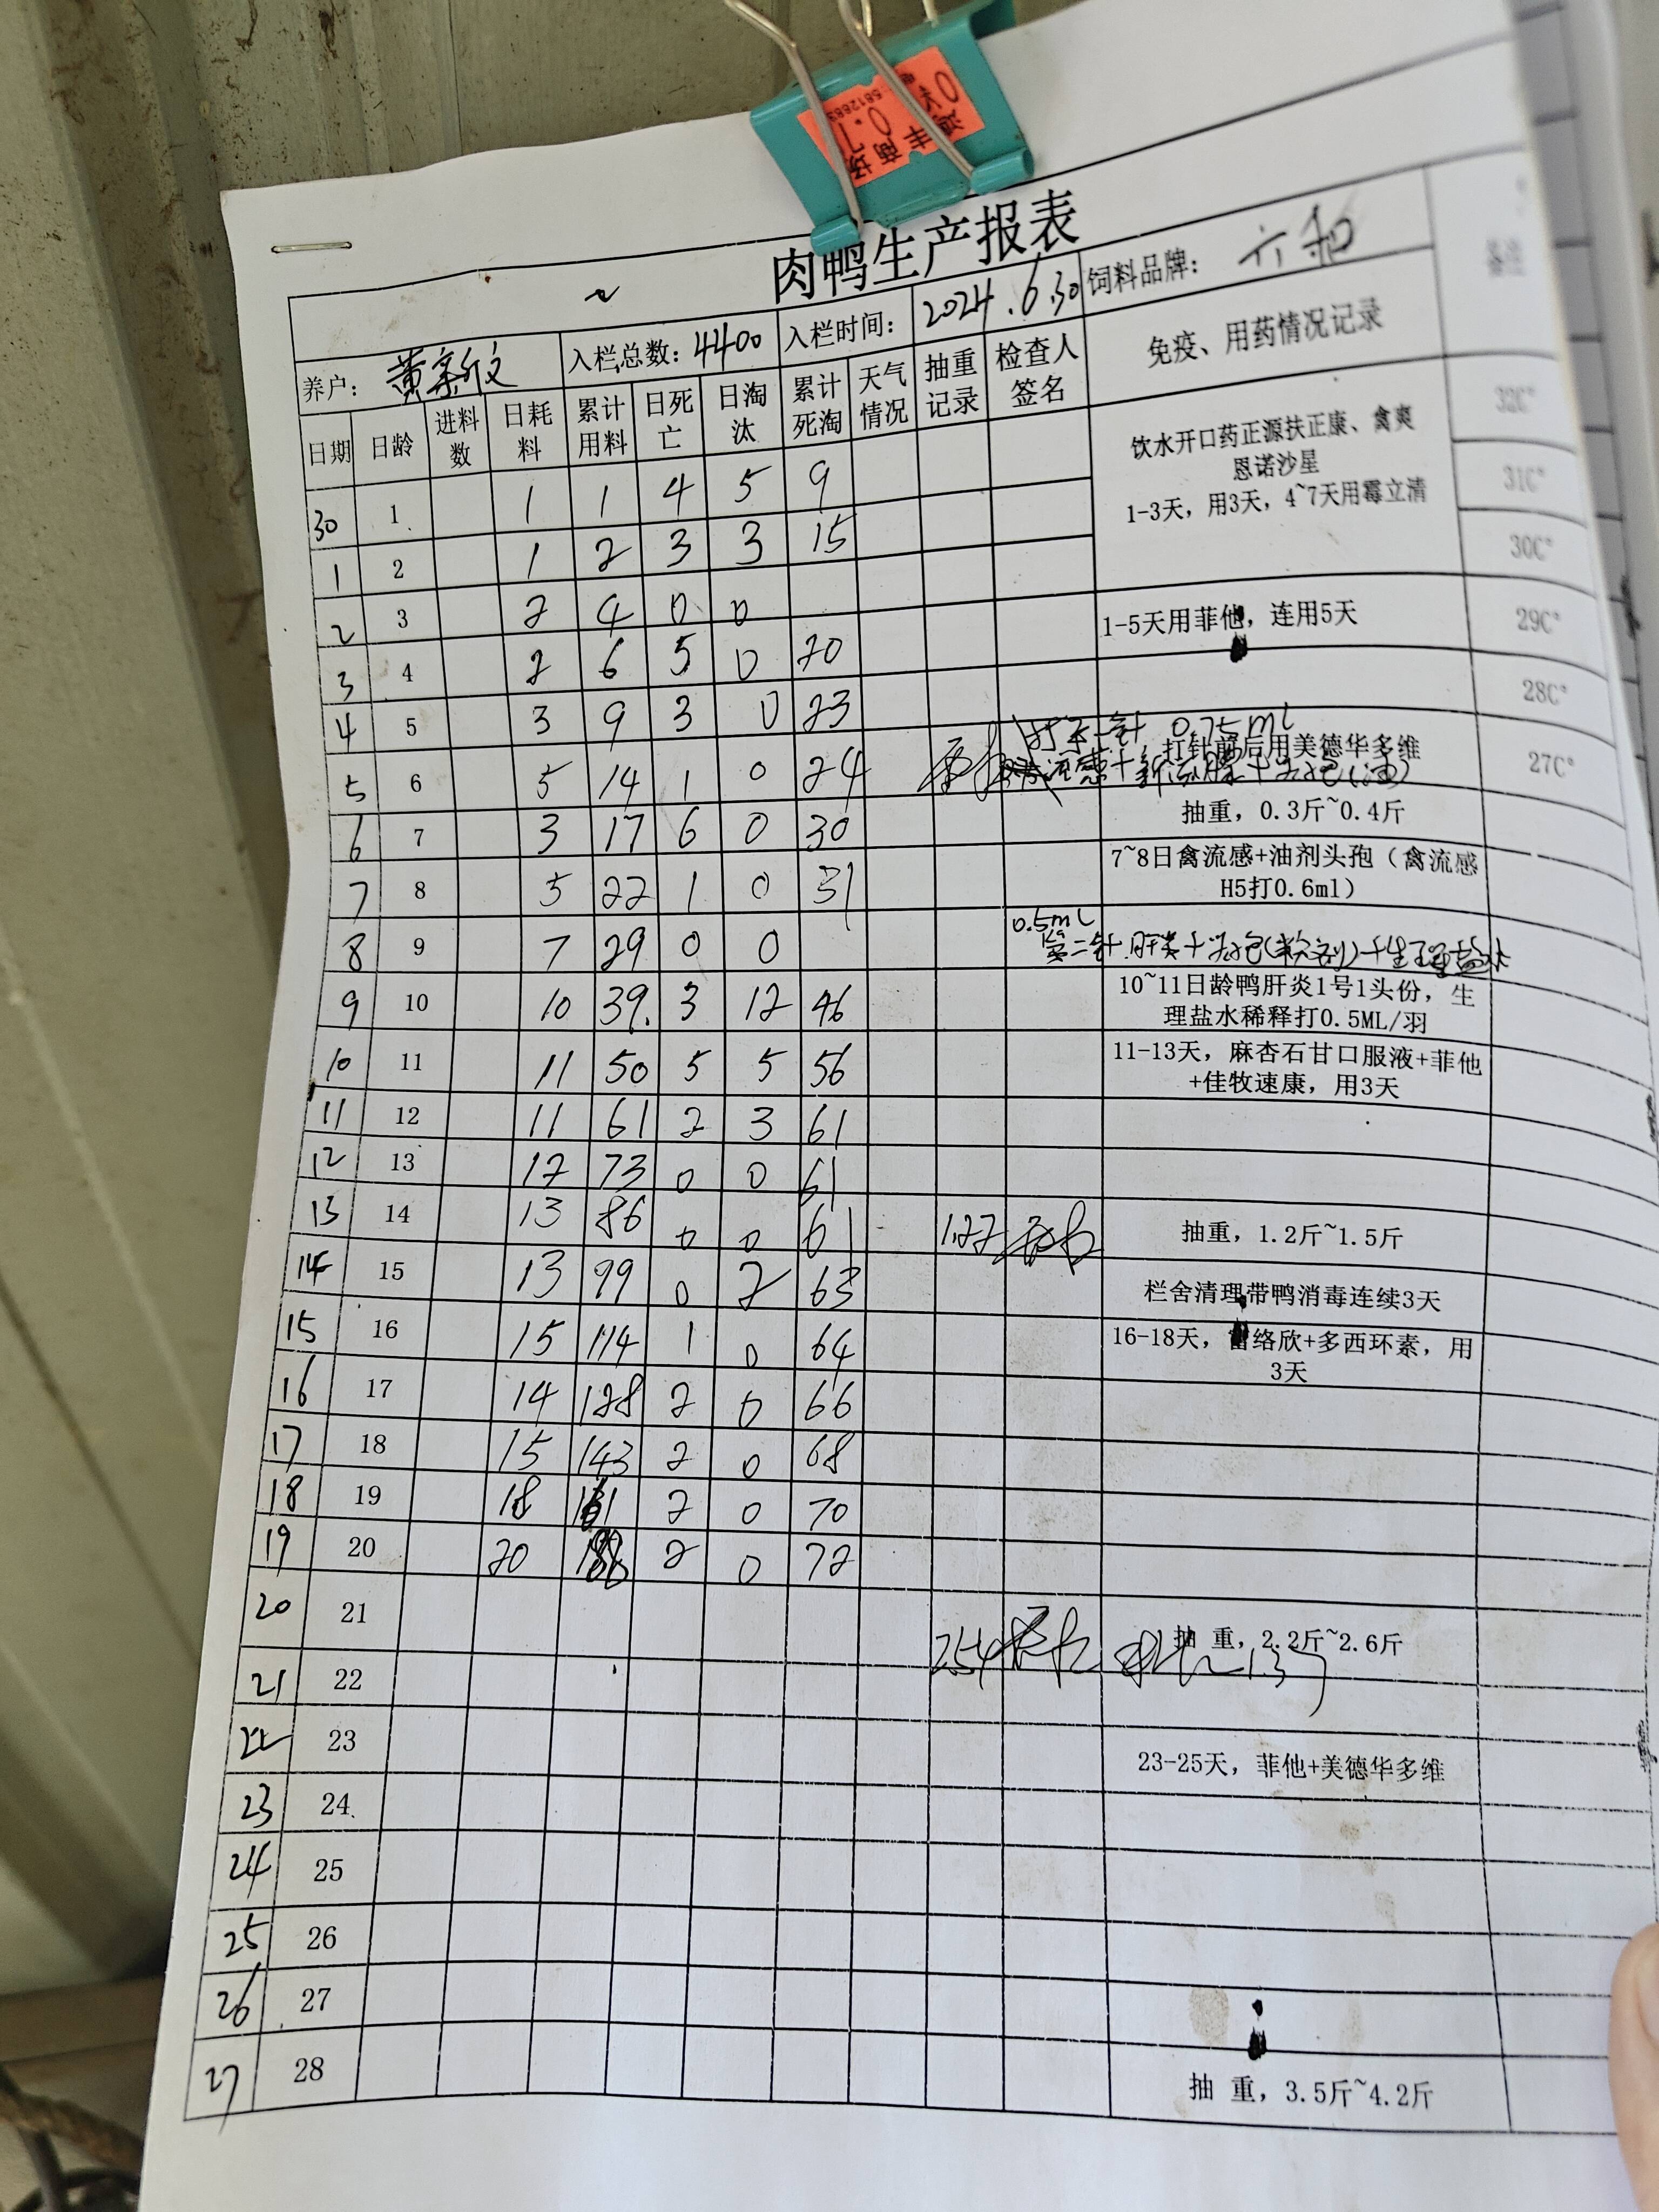 鸿丰商场
0.7
5812883
肉鸭生产报表
养户：
入栏总数：4400
入栏时间：2024.6.30
饲料品牌：六和
日期 日龄 进料数 日耗料 累计用料 日死亡 日淘汰 累计死淘 天气情况 抽重记录 检查人签名 免疫、用药情况记录 备注
30 1 1 1 4 5 9 32C°
饮水开口药正源扶正康、禽爽
恩诺沙星
1-3天，用3天，4~7天用霉立清
1 2 1 2 3 3 15 31C°
2 3 2 4 0 0 30C°
3 4 2 6 5 0 20 1-5天用菲他，连用5天 29C°
4 5 3 9 3 0 23 28C°
打第一针 0.75ml
5 6 5 14 1 0 24 打针前后用美德华多维 27C°
6 7 3 17 6 0 30 抽重，0.3斤~0.4斤
7 8 5 22 1 0 31 7~8日禽流感+油剂头孢（禽流感
H5打0.6ml）
0.5mL
8 9 7 29 0 0 第二针 肝炎+头包(粉剂)+生理盐水
9 10 10 39. 3 12 46 10~11日龄鸭肝炎1号1头份，生
理盐水稀释打0.5ML/羽
10 11 11 50 5 5 56 11-13天，麻杏石甘口服液+菲他
+佳牧速康，用3天
11 12 11 61 2 3 61
12 13 12 73 0 0 61
13 14 13 86 0 0 61 1.22 抽重，1.2斤~1.5斤
14 15 13 99 0 2 63 栏舍清理带鸭消毒连续3天
15 16 15 114 1 0 64 16-18天，富络欣+多西环素，用
3天
16 17 14 128 2 0 66
17 18 15 143 2 0 68
18 19 18 161 2 0 70
19 20 20 2 0 72
20 21 2.54 抽 重，2.2斤~2.6斤
21 22
22 23 23-25天，菲他+美德华多维
23 24
24 25
25 26
26 27
27 28 抽 重，3.5斤~4.2斤